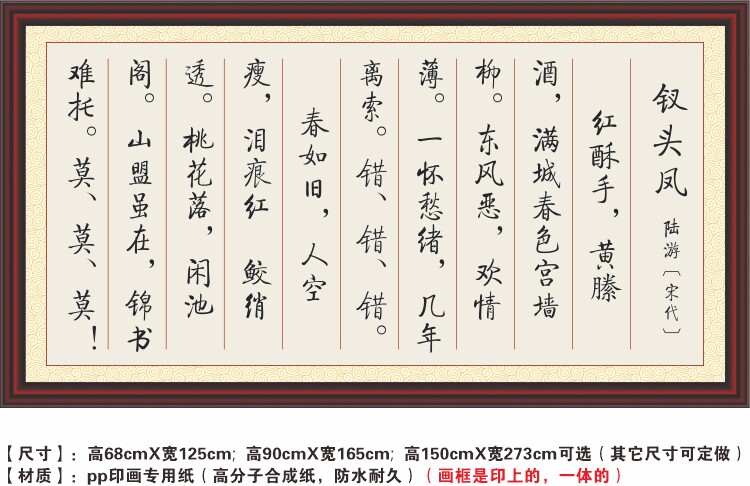 钗头凤 陆游〔宋代〕
红酥手，黄縢
酒，满城春色宫墙
柳。东风恶，欢情
薄。一怀愁绪，几年
离索。错、错、错。
春如旧，人空
瘦，泪痕红 鲛绡
透。桃花落，闲池
阁。山盟虽在，锦书
难托。莫、莫、莫！
【尺寸】：高68cmX宽125cm；高90cmX宽165cm；高150cmX宽273cm可选（其它尺寸可定做）
【材质】：pp印画专用纸（高分子合成纸，防水耐久）（画框是印上的，一体的）